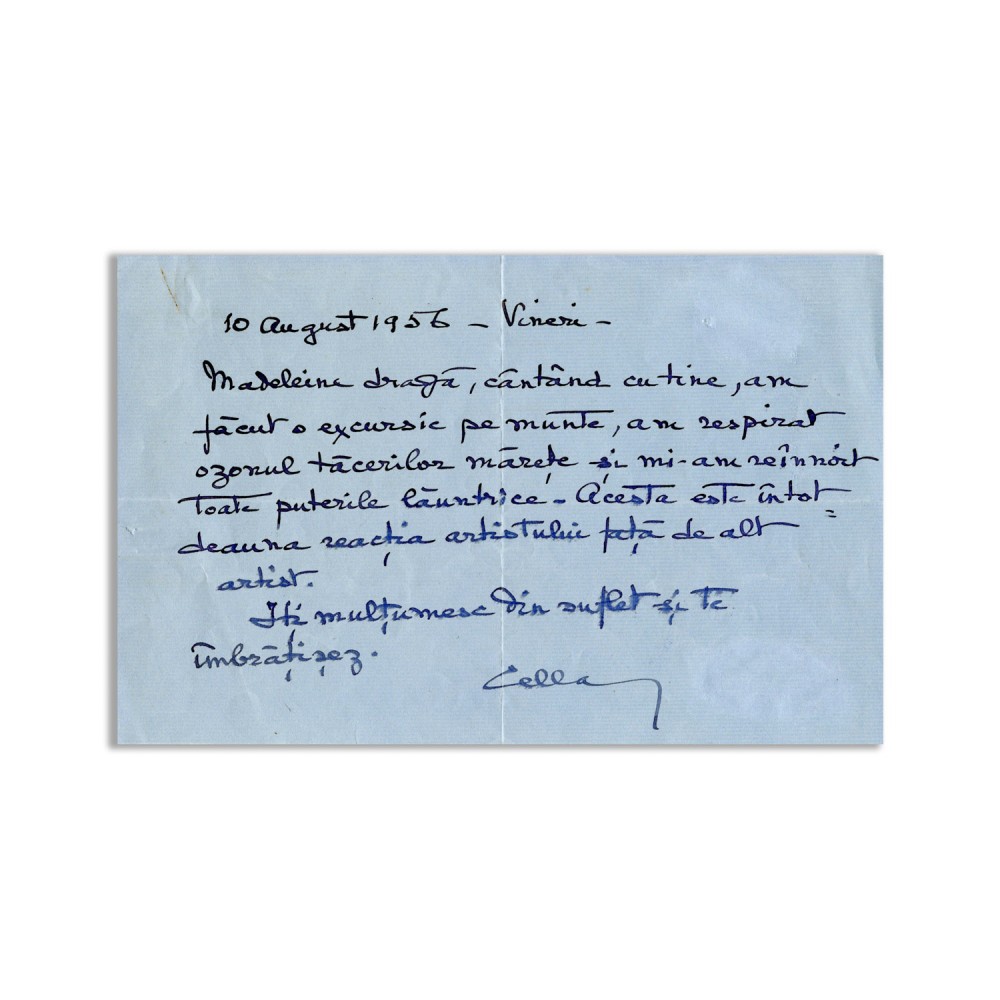 10 August 1956 - Vineri -
Madeleine dragă, cântând cu tine, am
făcut o excursie pe munte, am respirat
ozonul tăcerilor mărețe și mi-am reînnoit
toate puterile lăuntrice - Acesta este întot=
deauna reacția artistului față de alt
artist.
Iți mulțumesc din suflet și te
îmbrățișez.
Cella